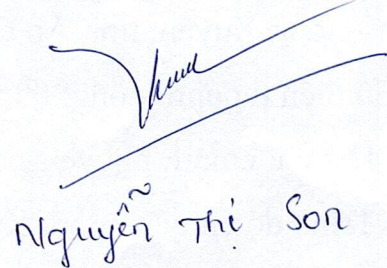 Nguyễn Thị Son